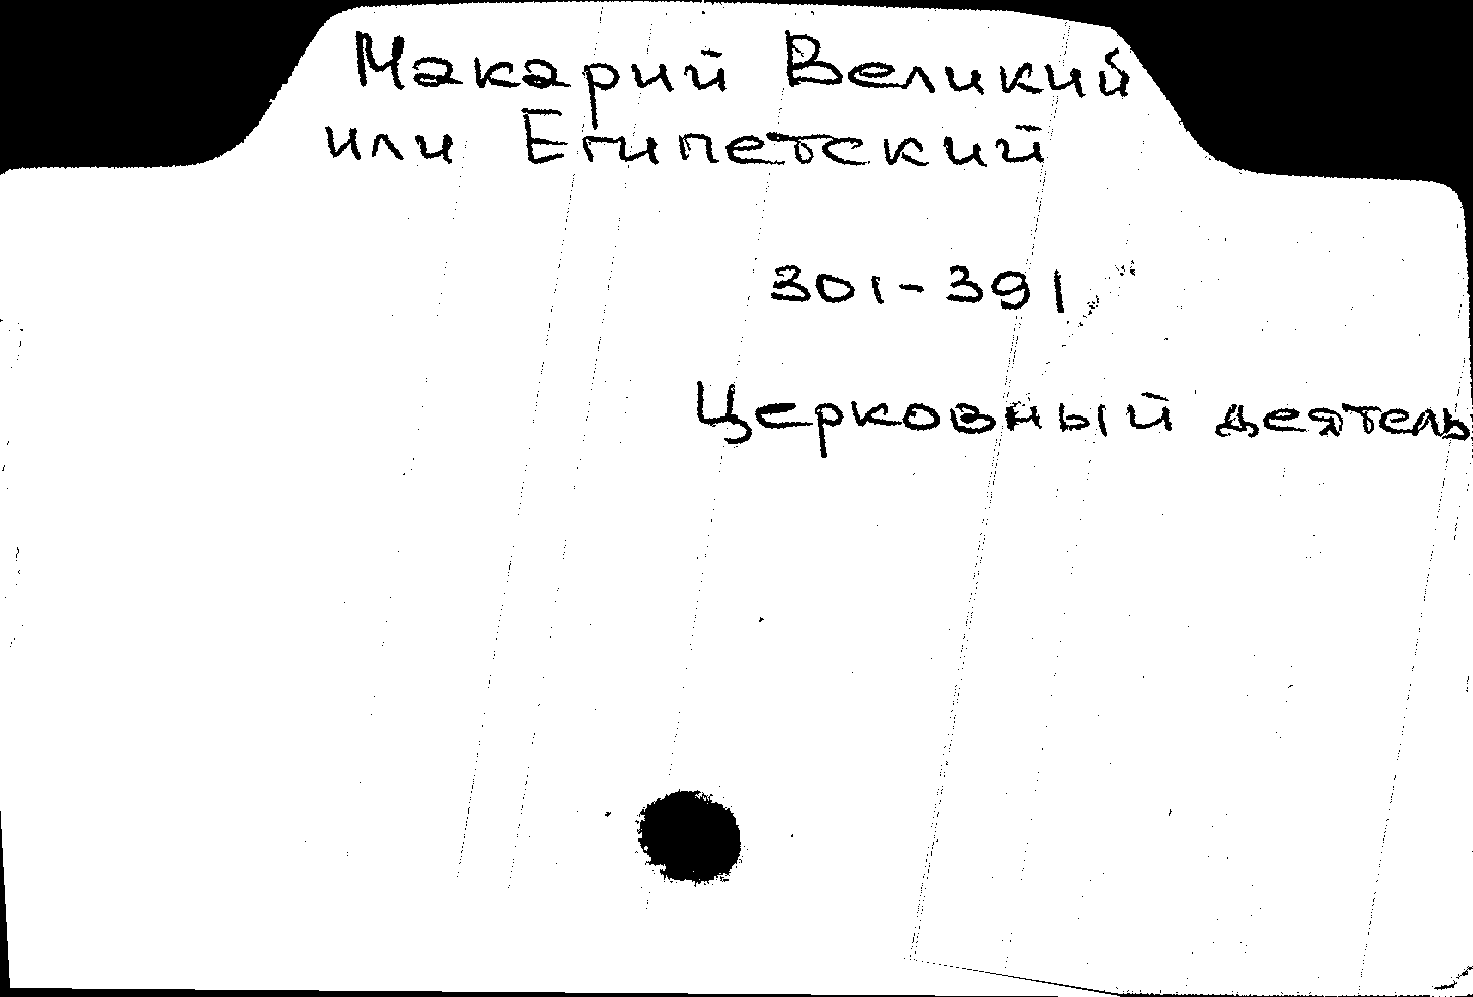 Макарий Великий
или Египетский
301-391
Церковный деятель